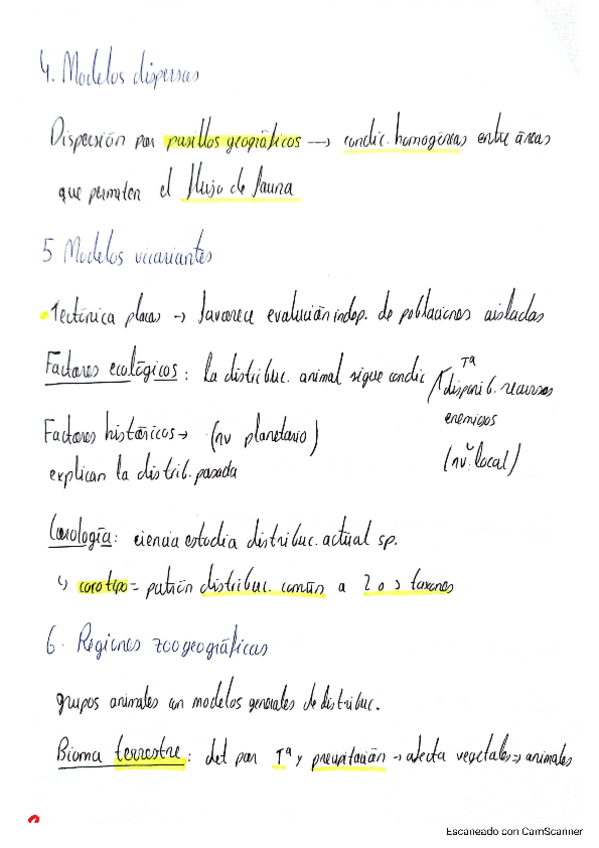 4. Modelos dispersas
Dispersión por pasillos geográficos → condic. homogéneas entre áreas
que permiten el flujo de fauna
5 Modelos vicariantes
• Tectónica placas → favorece evolución indep. de poblaciones aisladas
Factores ecológicos: la distribuc. animal sigue condic / Tª
disponib. recursos
enemigos
(nv. local)
Factores históricos → (nv planetario)
explican la distrib. pasada
Corología: ciencia estudia distribuc. actual sp.
↳ corotipo = patrón distribuc. común a 2 o 3 taxones
6. Regiones zoogeográficas
grupos animales con modelos generales de distribuc.
Bioma terrestre: det por Tª y precipitación → afecta vegetales → animales
Escaneado con CamScanner